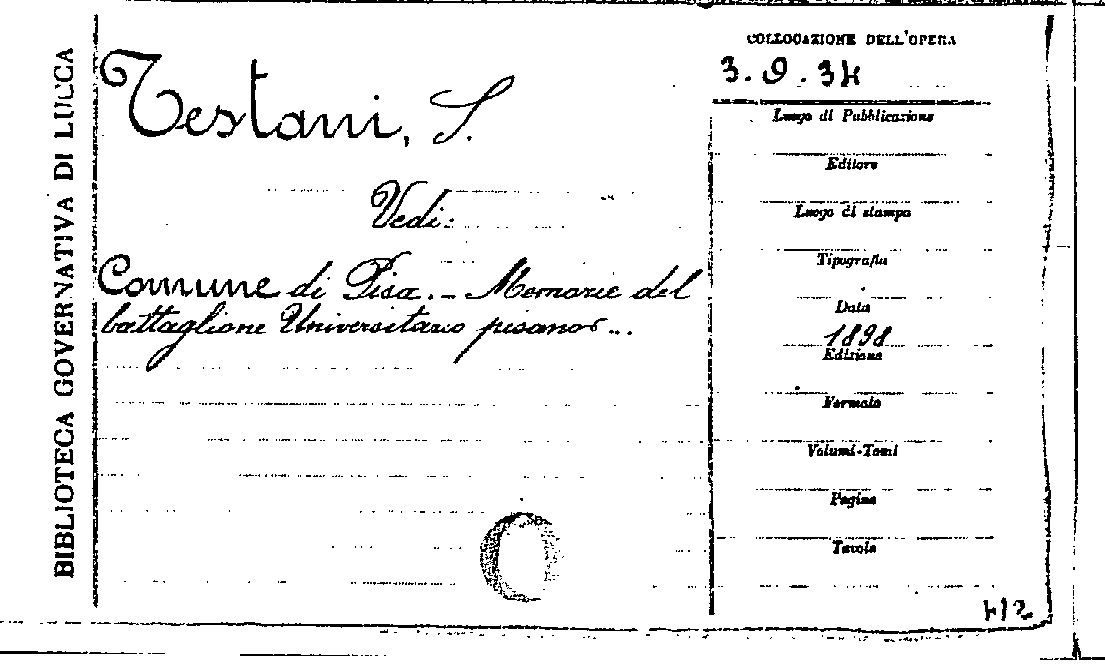 BIBLIOTECA GOVERNATIVA DI LUCCA
Testani, S.
Vedi:
Comune di Pisa. - Memorie del
battaglione Universitario pisano...
COLLOCAZIONE DELL'OPERA
3.9.34
Luogo di Pubblicazione
Editore
Luogo di stampa
Tipografia
Data
1898
Edizione
Formato
Volumi-Tomi
Pagine
Tavole